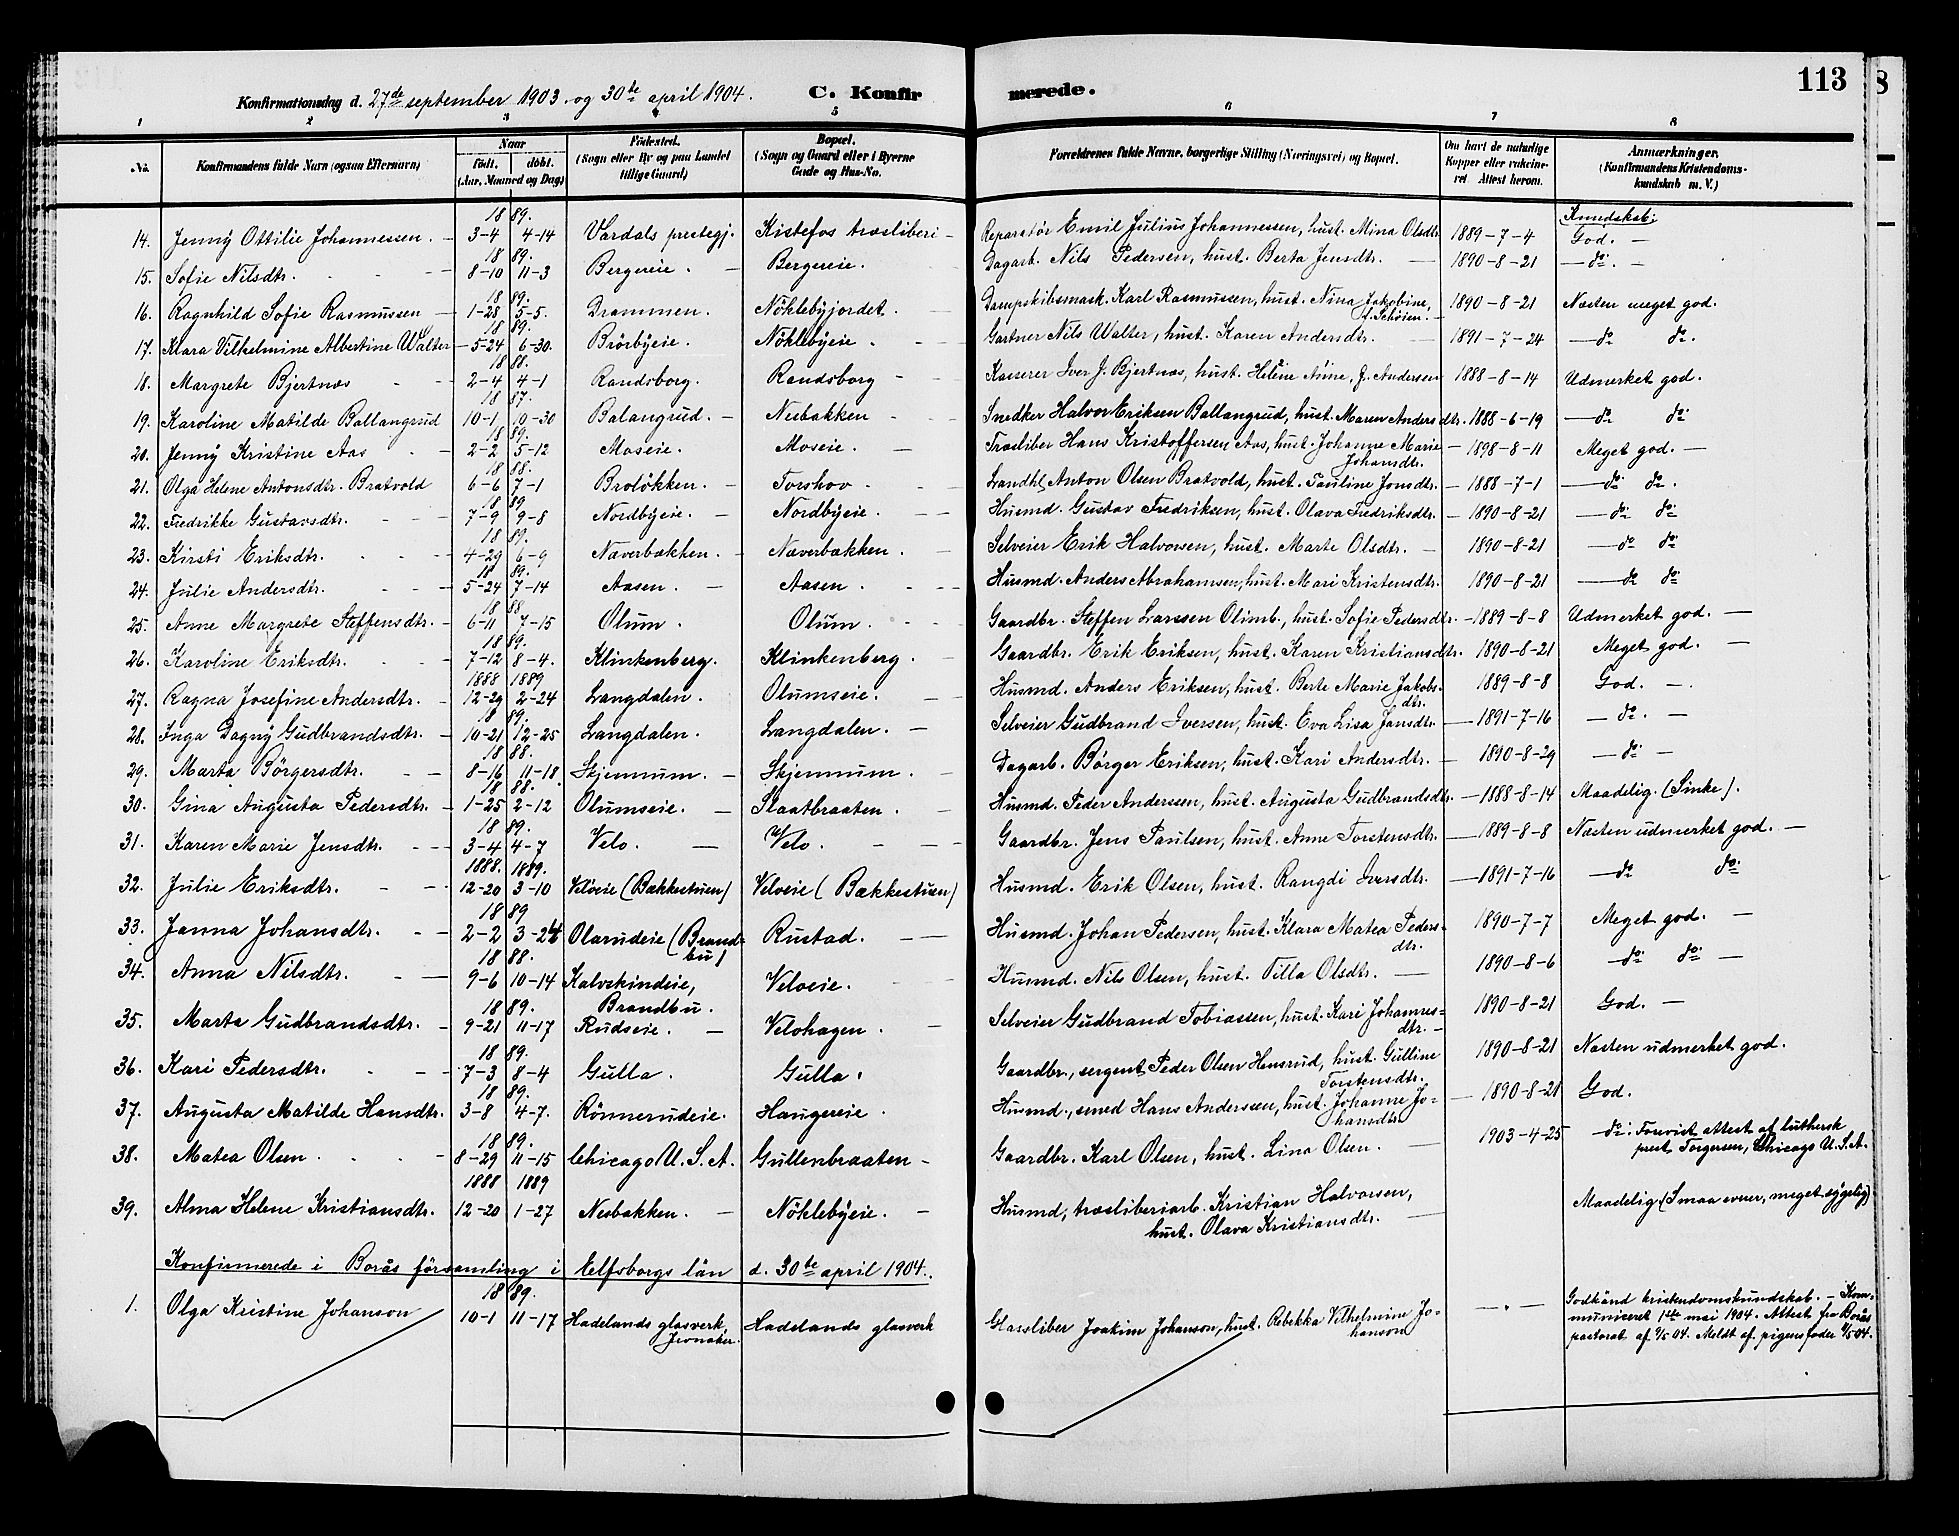 113
8
Konfirmationsdag d. 27de september 1903 og 30te april 1904. C. Konfirmerede.
1 2 3 4 5 6 7 8
No. Konfirmandens fulde Navn (ogsaa Efternavn) Naar födt. döbt. (Aar, Maaned og Dag) Födested. (Sogn eller By og paa Landet tillige Gaard.) Bopæl. (Sogn og Gaard eller i Byerne Gade og Hus-No. Forældrenes fulde Navne, borgerlige Stilling (Næringsvei) og Bopæl. Om havt de naturlige Kopper eller vakcineret Attest herom. Anmærkninger. (Konfirmandens Kristendomskundskab m. V.)
Kundskab:
18 89.
14. Jenny Ottilie Johannessen. 3-4 4-14 Vardals prestegj. Kistefos træsliberi Reparatör Emil Julius Johannessen, hust. Mina Olsdtr. 1889-7-4 God. —
18 89.
15. Sofie Nilsdtr. 8-10 11-3 Bergereie. Bergereie. Dagarb. Nils Pedersen, hust. Berta Jensdtr. 1890-8-21 — do. —
18 89.
16. Ragnhild Sofie Rasmussen 1-28 5-5. Drammen. Nöklebyjordet. Dampskibsmask. Karl Rasmussen, hust. Nina Jakobine, f. Schöien. 1890-8-21 Næsten meget god.
18 89.
17. Klara Vilhelmine Albertine Walter 5-24 6-30. Brörbyeie. Nöklebyeie Gartner Nils Walter, hust. Karen Andersdtr. 1891-7-24 — do do.
18 88.
18. Margrete Bjertnæs 2-4 4-1 Randsborg. Randsborg Kasserer Iver J. Bjertnæs, hust. Helene Anne, f. Andersen 1888-8-14 Udmerket god.
18 87.
19. Karoline Matilde Ballangrud 10-1 10-30 Balangrud. Nesbakken Snedker Halvor Eriksen Ballangrud, hust. Maren Andersdtr. 1888-6-19 — do do.
18 89.
20. Jenny Kristine Aas 2-2 5-12 Moseie. Moseie. Træsliber Hans Kristoffersen Aas, hust. Johanne Marie Johansdtr. 1898-8-11 Meget god. —
18 88.
21. Olga Helene Antonsdtr. Bratvold 6-6 7-1 Brolökken. Torshov. Landhl. Anton Olsen Bratvold, hust. Pauline Jonsdtr. 1888-7-1 — do do.
18 89
22. Fredrikke Gustavsdtr. 7-9 9-8 Nordbyeie. Nordbyeie. Husmd. Gustav Fredriksen, hust. Olava Fredriksdtr. 1890-8-21 — do do.
18 89.
23. Kirsti Eriksdtr. 4-29 6-9 Næverbakken. Næverbakken. Selveier Erik Halvorsen, hust. Marte Olsdtr. 1890-8-21 — do do.
18 89.
24. Julie Andersdtr. 5-24 7-14 Aasen. Aasen. Husmd. Anders Abrahamsen, hust. Mari Kristensdtr. 1890-8-21 — do do.
18 88
25. Anne Margrete Steffensdtr. 6-11 7-15 Olum. Olum. Gaardbr. Steffen Larssen Olimb., hust. Sofie Pedersdtr. 1889-8-8 Udmerket god. —
18 89.
26. Karoline Eriksdtr. 7-12 8-4. Klinkenberg. Klinkenberg. Gaardbr. Erik Eriksen, hust. Karen Kristiansdtr. 1890-8-21 Meget god. —
1888 1889
27. Ragna Josefine Andersdtr. 12-29 2-24 Langdalen. Olumseie. Husmd. Anders Eriksen, hust. Berte Marie Jakobsdtr. 1889-8-8 God. —
18 89.
28. Inga Dagny Gudbrandsdtr. 10-21 12-25 Langdalen. Langdalen. Selveier Gudbrand Iversen, hust. Eva Lisa Jansdtr. 1891-7-16 — do. —
18 88.
29. Marta Börgersdtr. 8-16 11-18 Skjennum. Skjennum. Dagarb. Börger Eriksen, hust. Kari Andersdtr. 1890-8-29 — do. —
18 88.
30. Gina Augusta Pedersdtr. 1-25 2-12 Olumseie. Slaatbraaten. Husmd. Peder Anderssen, hust. Augusta Gudbrandsdtr. 1888-8-14 Maadelig. (Sinke).
18 89.
31. Karen Marie Jensdtr. 3-4 4-7 Velo. Velo. Gaardbr. Jens Paulsen, hust. Anne Torstensdtr. 1889-8-8 Næsten udmerket god. —
1888. 1889.
32. Julie Eriksdtr. 12-20 3-10 Veloeie (Bækkestuen) Veloeie (Bækkestuen) Husmd. Erik Olsen, hust. Rangdi Iversdtr. 1891-7-16 — do do.
18 89
33. Janna Johansdtr. 2-2 3-24 Olarudeie (Brandbu) Rustad. Husmd. Johan Pedersen, hust. Klara Matea Pedersdtr. 1890-7-7 Meget god. —
18 88.
34. Anna Nilsdtr. 9-6 10-14 Kalvskindeie, Brandbu. Veloeie. Husmd. Nils Olsen, hust. Tilla Olsdtr. 1890-8-6 — do. do. —
18 89.
35. Marta Gudbrandsdtr. 9-21 11-17 Rudseie. Velohagen. Selveier Gudbrand Tobiassen, hust. Kari Johannesdtr. 1890-8-21 God. —
18 89.
36. Kari Pedersdtr. 7-3 8-4 Gulla. Gulla. Gaardbr., sergent Peder Olsen Hensrud, hust. Gulline Torstensdtr. 1890-8-21 Næsten udmerket god.
18 89.
37. Augusta Matilde Hansdtr. 3-8 4-7. Rönnerudeie. Haugereie. Husmd., smed Hans Anderssen, hust. Johanne Johansdtr. 1890-8-21 God.
18 89.
38. Matea Olsen 8-29 11-15 Chicago U.S.A. Gullenbraaten Gaardbr. Karl Olsen, hust. Lina Olsen. 1903-4-25 — do. Forevist attest af luthersk prest Torgersen, Chicago U.S.A.
1888 1889
39. Alma Helene Kristiansdtr. 12-20 1-27 Nesbakken. Nöklebyeie. Husmd, træsliberiarb. Kristian Halvorsen, hust. Olava Kristiansdtr. Maadelig (Smaa evner, meget sygelig)
Konfirmerede i Borås församling i Elfsborgs län d. 30te april 1904.
18 89.
1. Olga Kristine Johanson 10-1 11-17 Hadelands glasverk, Jevnaker. Hadelands glasverk Glassliber Joakim Johanson, hust. Rebekka Vilhelmine Johanson — „ — Godkänd kristendomskundskab. — Kommuniceret 1ste mai 1904. Attest fra Borås pastorat af 2/5 04. Meldt af pigens fader 4/5 04.